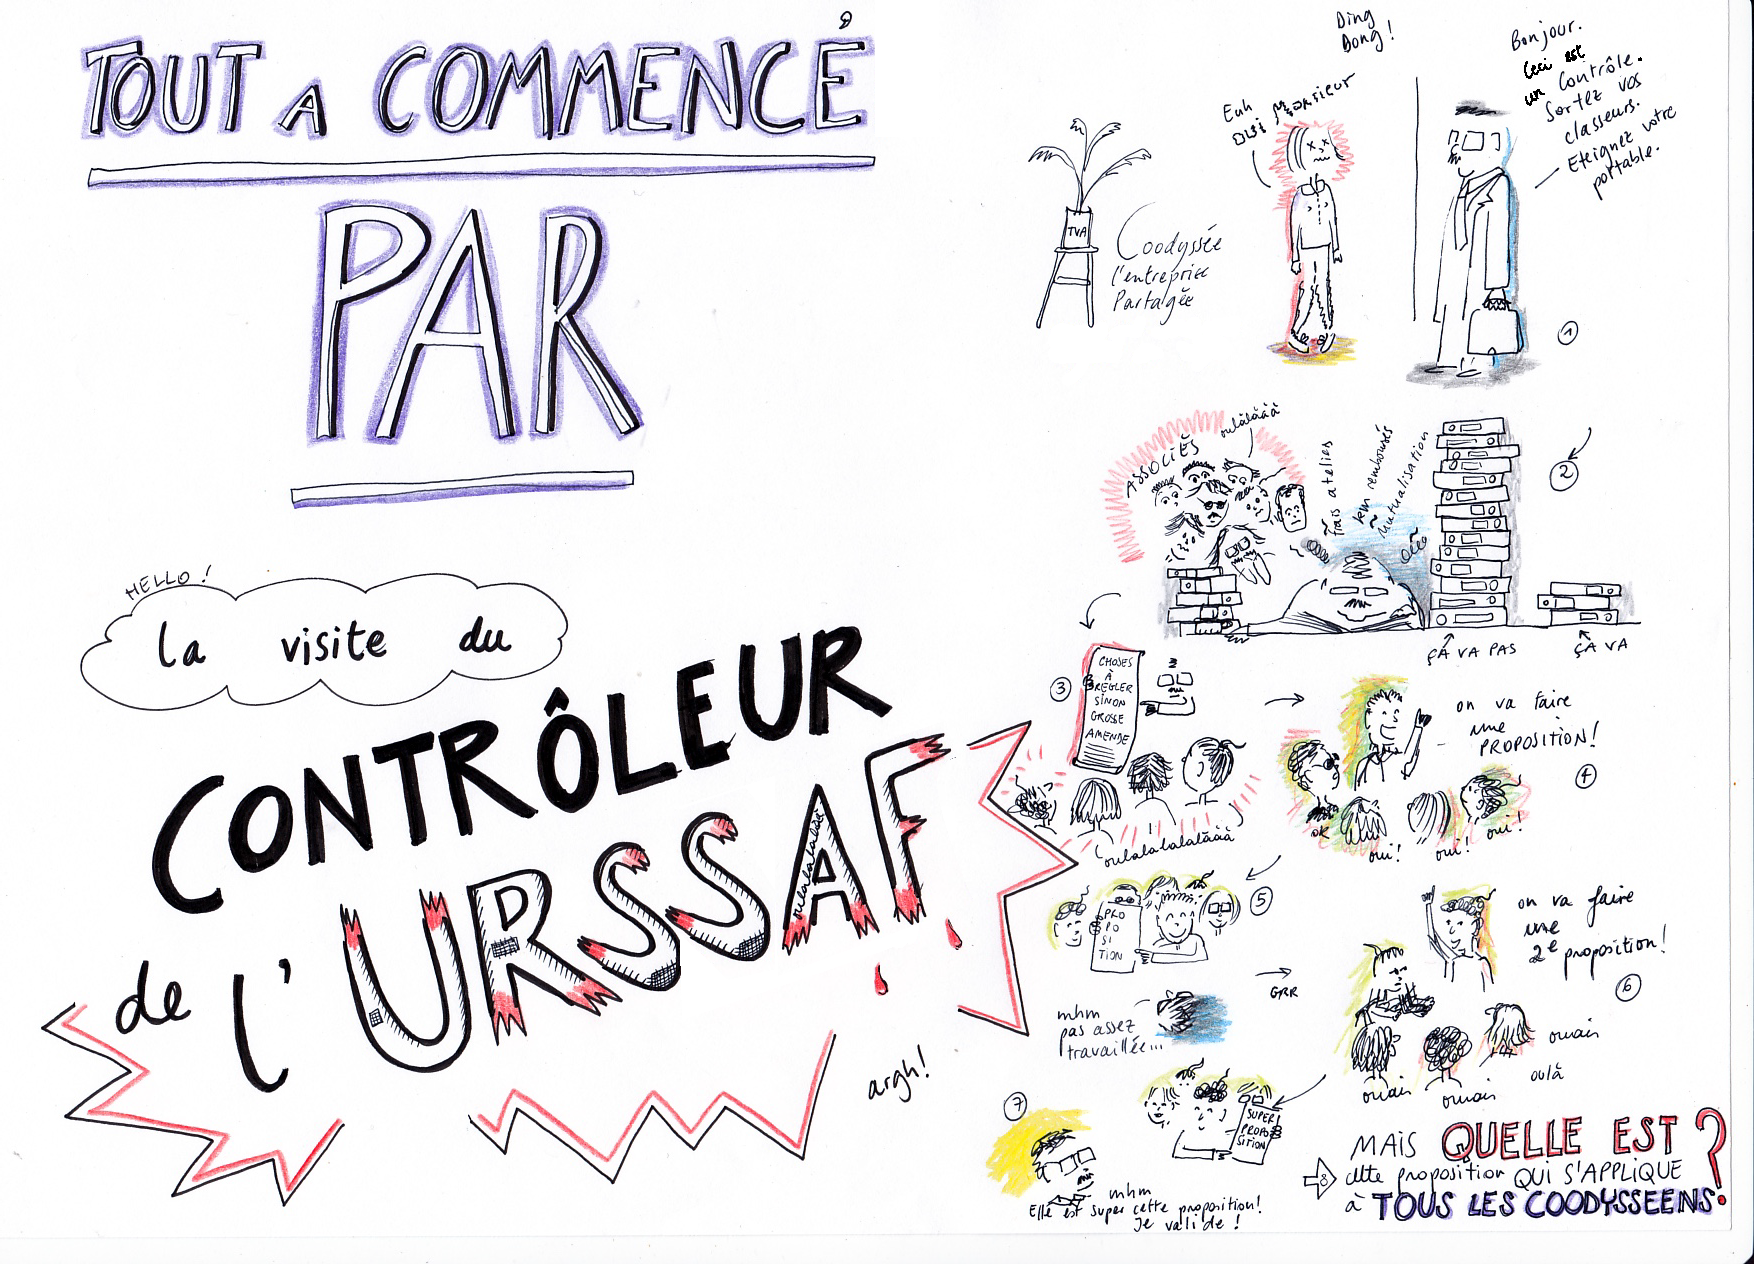 TOUT A COMMENCÉ
PAR
HELLO !
la visite du
CONTRÔLEUR
de l'URSSAF
oulalalalaàà
argh !
Ding
Dong !
Euh
oui Monsieur
Bonjour.
Ceci est
un Contrôle.
Sortez vos
classeurs.
Eteignez votre
portable.
TVA
Coodyssée
l'entreprise
Partagée
1
ASSOCIÉS
oulàlàààà
frais atelier
km remboursés
Mutualisation
2
ÇA VA PAS
ÇA VA
3
CHOSES
À
RÉGLER
SINON
GROSSE
AMENDE
oulalalalalaààà
on va faire
une
PROPOSITION !
4
OK
oui !
oui !
oui !
5
PRO
PO
SI
TION
mhm
pas assez
travaillée...
GRR
on va faire
une
2e proposition !
6
ouais
oulà
ouais
ouais
7
SUPER
PROPO
SITION
mhm
Elle est super cette proposition !
Je valide !
MAIS QUELLE EST
cette proposition QUI S'APPLIQUE
à TOUS LES COODYSSEENS ?